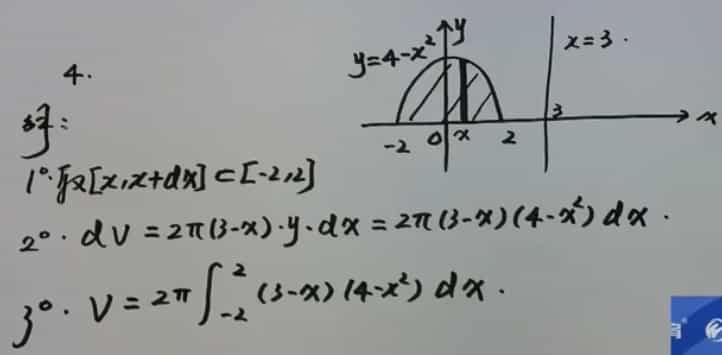 4.
解:
y=4-x²
y
x=3.
-2 0 x 2 3 x
1°.取[x,x+dx]⊂[-2,2]
2°. dV=2π(3-x)·y·dx=2π(3-x)(4-x²)dx.
3°. V=2π∫₋₂²(3-x)(4-x²)dx.
育